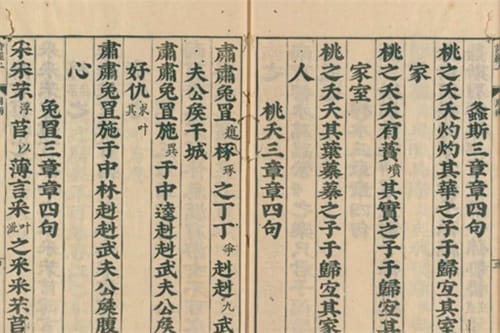 螽斯三章章四句
桃之夭夭灼灼其華之子于歸宐其室
家
桃之夭夭有蕡墳其實之子于歸宐其
家室
桃之夭夭其葉蓁蓁之子于歸宐其家
人
桃夭三章章四句
肅肅兔罝椓琢之丁丁爭赳赳九武
夫公矦干城
肅肅兔罝施異于中逵赳赳武夫公矦
好仇叶求其
肅肅兔罝施于中林赳赳武夫公矦腹
心
兔罝三章章四句
采采芣浮苢以薄言采叶之采采芣苢